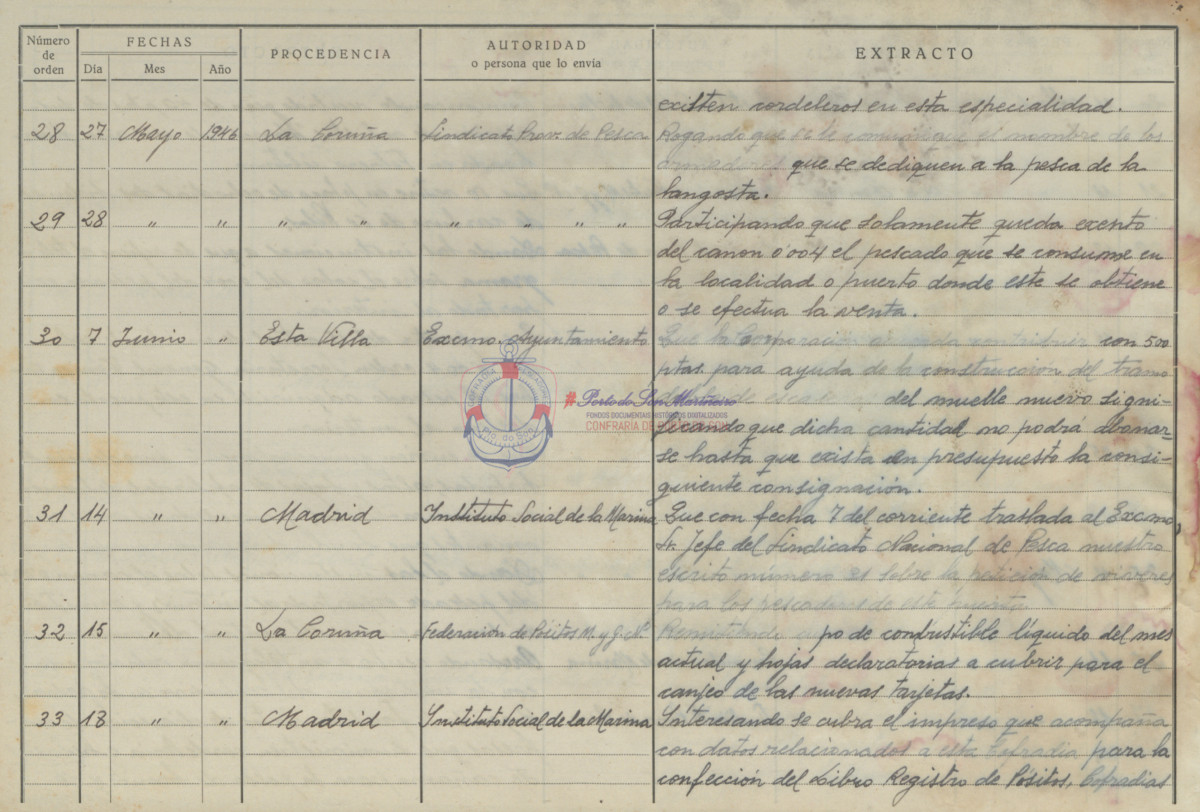 Número de orden FECHAS Día Mes Año PROCEDENCIA AUTORIDAD o persona que lo envía EXTRACTO
existen cordeleros en esta especialidad.
28 27 Mayo 1946 La Coruña Sindicato Prov. de Pesca Rogando que se le comunique el nombre de los
armadores que se dediquen a la pesca de la
langosta.
29 28 " " " " " " " " Participando que solamente queda exento
del canon 0'004 el pescado que se consume en
la localidad o puerto donde este se obtiene
o se efectua la venta.
30 7 Junio " Esta Villa Excmo. Ayuntamiento Que la Corporación acuerda contribuir con 500
ptas. para ayuda de la construcción del tramo
de del muelle nuevo signi-
ficando que dicha cantidad no podrá abonar-
se hasta que exista en presupuesto la consi-
guiente consignación.
31 14 " " Madrid Instituto Social de la Marina Que con fecha 7 del corriente traslada al Excmo,
Sr. Jefe del Sindicato Nacional de Pesca nuestro
escrito número sobre la petición de víveres
para los pescadores de este puerto
32 15 " " La Coruña Federación de Pósitos M. y G. Nº Remitiendo cupo de combustible líquido del mes
actual y hojas declaratorias a cubrir para el
canjeo de las nuevas tarjetas.
33 18 " " Madrid Instituto Social de la Marina Interesando se cubra el impreso que acompaña
con datos relacionados a esta Cofradia para la
confección del Libro Registro de Pósitos, Cofradias
#Porto do Son Mariñeiro
FONDOS DOCUMENTAIS HISTÓRICOS DIXITALIZADOS
CONFRARÍA DE PORTO DO SON
Pto. do Son